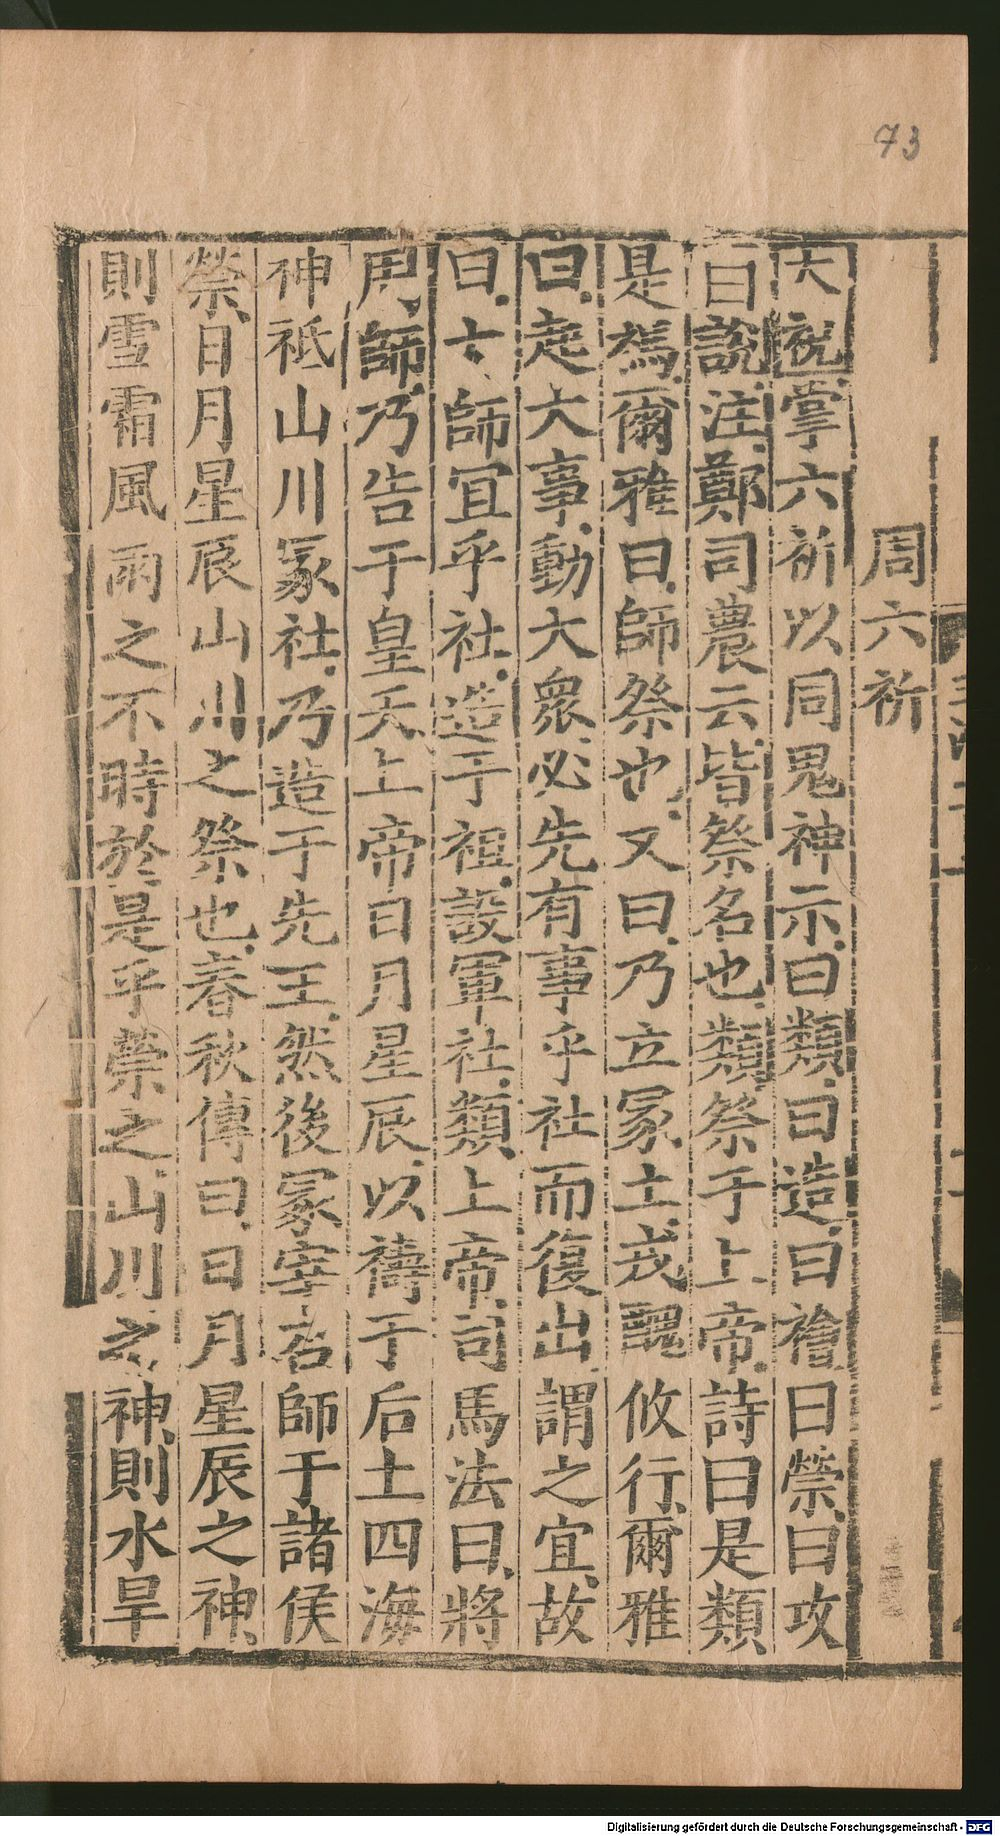 73
周六祈
大祝掌六祈以同鬼神示曰類曰造曰禬曰禜曰攻
曰說注鄭司農云皆祭名也類祭于上帝詩曰是類
是禡爾雅曰師祭也又曰乃立冡土戎醜攸行爾雅
曰起大事動大衆必先有事乎社而後出謂之宜故
曰大師宜乎社造于祖設軍社類上帝司馬法曰將
用師乃告于皇天上帝日月星辰以禱于后土四海
神祗山川冡社乃造于先王然後冡宰召師于諸侯
禜日月星辰山川之祭也春秋傳曰日月星辰之神
則雪霜風雨之不時於是乎禜之山川之神則水旱
Digitalisierung gefördert durch die Deutsche Forschungsgemeinschaft - DFG